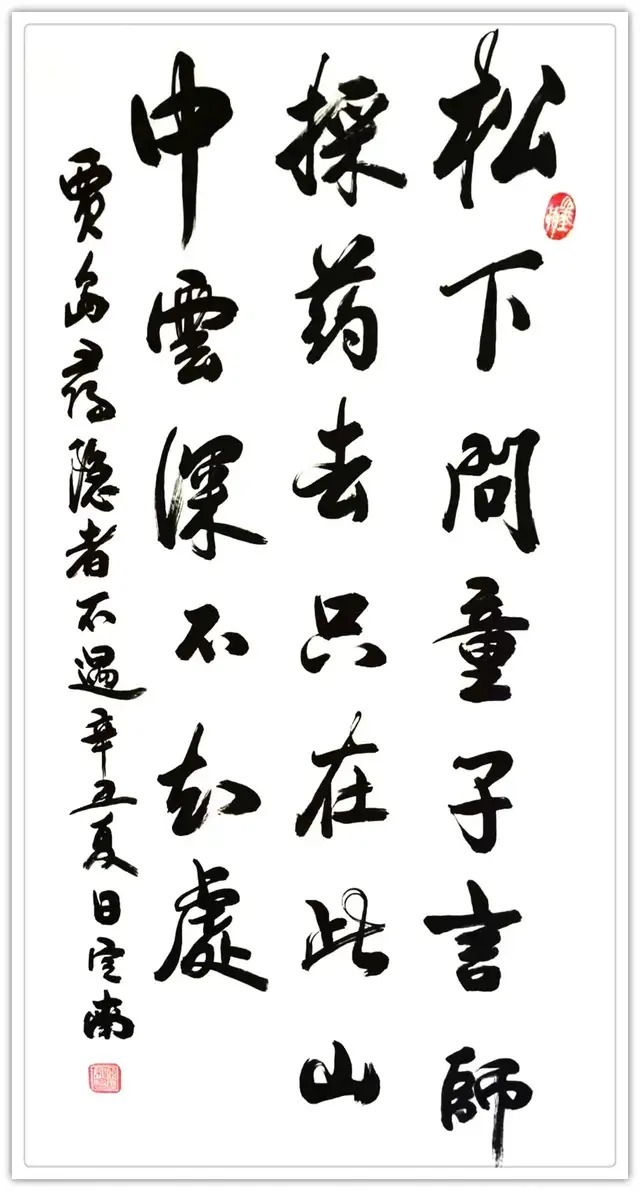 松下問童子言師
採药去只在此山
中雲深不知處
贾岛尋隐者不遇辛丑夏日南